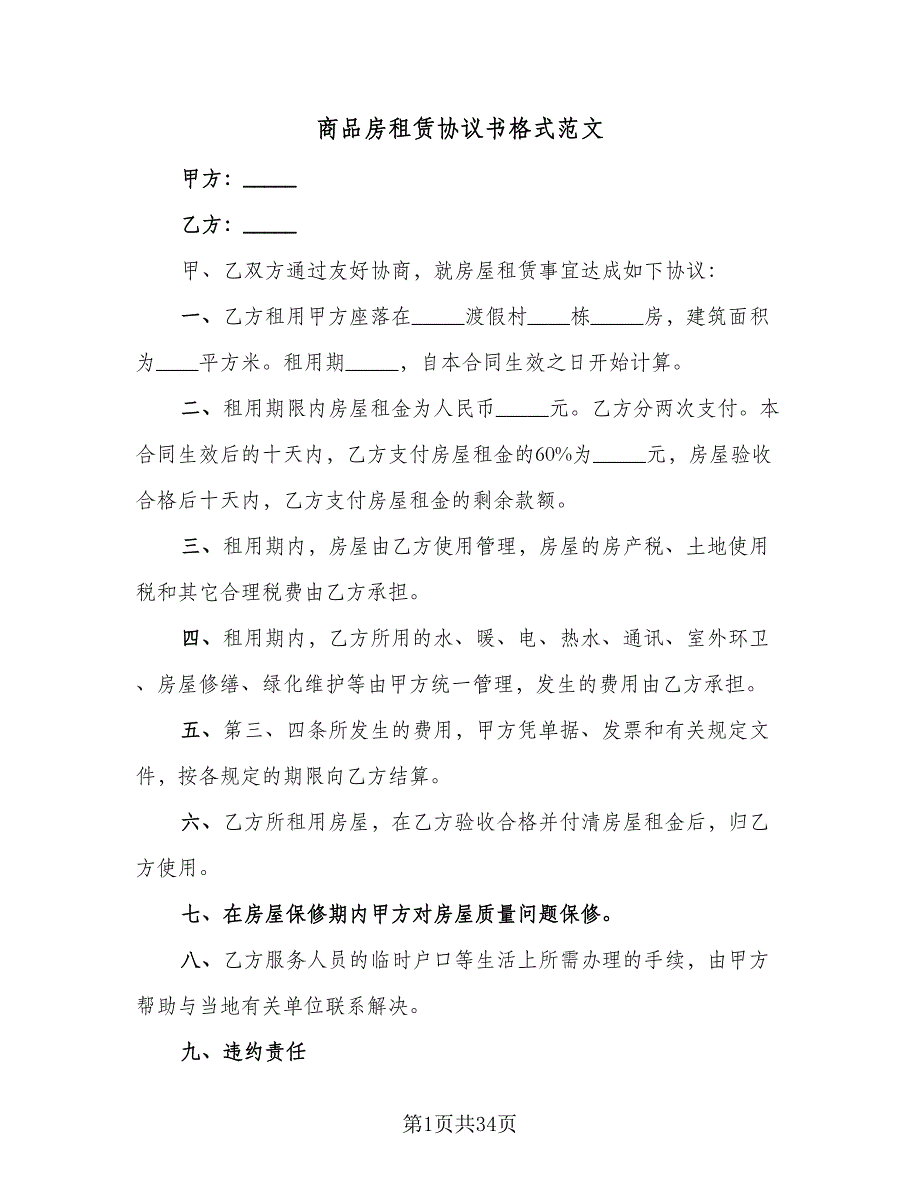 商品房租赁协议书格式范文
甲方：_____
乙方：_____
甲、乙双方通过友好协商，就房屋租赁事宜达成如下协议：
一、乙方租用甲方座落在_____渡假村____栋_____房，建筑面积
为____平方米。租用期_____，自本合同生效之日开始计算。
二、租用期限内房屋租金为人民币_____元。乙方分两次支付。本
合同生效后的十天内，乙方支付房屋租金的60%为_____元，房屋验收
合格后十天内，乙方支付房屋租金的剩余款额。
三、租用期内，房屋由乙方使用管理，房屋的房产税、土地使用
税和其它合理税费由乙方承担。
四、租用期内，乙方所用的水、暖、电、热水、通讯、室外环卫
、房屋修缮、绿化维护等由甲方统一管理，发生的费用由乙方承担。
五、第三、四条所发生的费用，甲方凭单据、发票和有关规定文
件，按各规定的期限向乙方结算。
六、乙方所租用房屋，在乙方验收合格并付清房屋租金后，归乙
方使用。
七、在房屋保修期内甲方对房屋质量问题保修。
八、乙方服务人员的临时户口等生活上所需办理的手续，由甲方
帮助与当地有关单位联系解决。
九、违约责任
第1页共34页